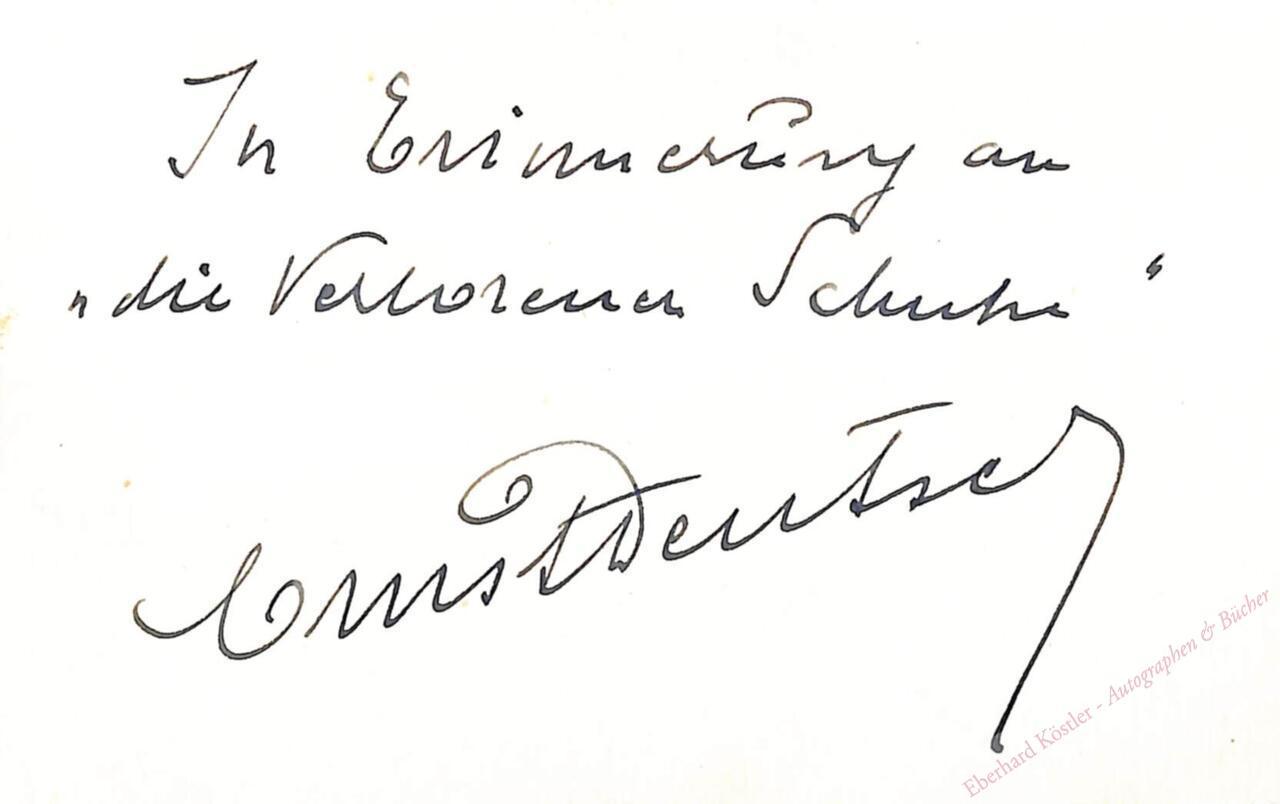 In Erinnerung an
„die Verlorenen Schuhe“
Ernst Deutsch
Eberhard Köstler - Autographen & Bücher